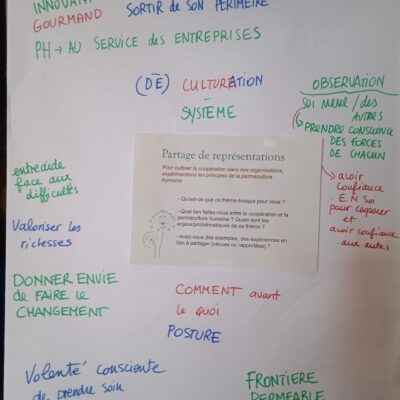 INNOVANT
GOURMAND
SORTIR DE SON PÉRIMÈTRE
PH → AU SERVICE des ENTREPRISES
(DÉ) CULTURATION
SYSTÈME
OBSERVATION
SOI MÊME / DES
AUTRES
PRENDRE CONSCIENCE
DES FORCES
DE CHACUN
→ avoir
confiance
EN Soi
pour coopérer
et
avoir confiance
aux autres
Partage de représentations
Pour cultiver la coopération dans nos organisations,
expérimentons les principes de la permaculture
humaine
- Qu'est-ce que ce thème évoque pour vous ?
- Quel lien faites-vous entre la coopération et la
permaculture humaine ? Quels sont les
enjeux/problématiques de ce thème ?
- Avez-vous des exemples, des expériences en
lien à partager (vécues ou rapportées) ?
entraide
face aux
difficultés
Valoriser les
richesses
DONNER ENVIE
DE FAIRE le
CHANGEMENT
COMMENT avant
le quoi
POSTURE
Volonté consciente
de prendre soin
FRONTIERE
PERMEABLE